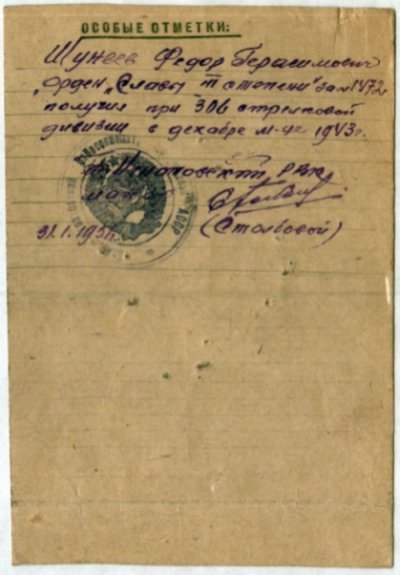 ОСОБЫЕ ОТМЕТКИ:
Шунеев Федор Герасимович
орден „Славы III степени" за № 1472
получил при 306 стрелковой
дивизии в декабре м-це 1943 г.
РВК
31.1.195
(Столбовой)